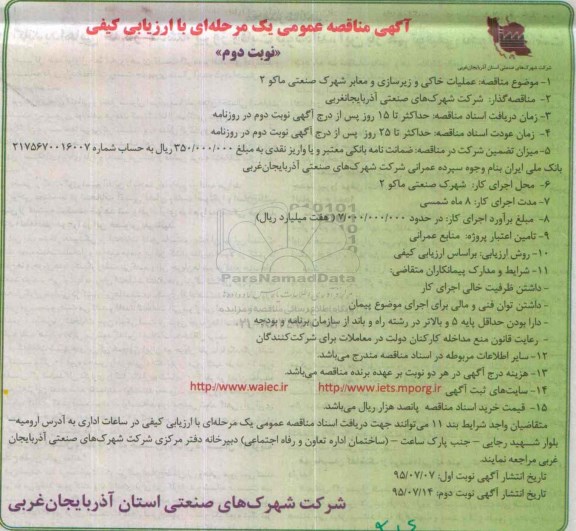 آگهی مناقصه عمومی یک مرحله‌ای با ارزیابی کیفی
«نوبت دوم»
شرکت شهرک‌های صنعتی استان آذربایجان‌غربی
۱- موضوع مناقصه: عملیات خاکی و زیرسازی و معابر شهرک صنعتی ماکو ۲
۲- مناقصه‌گذار: شرکت شهرک‌های صنعتی آذربایجانغربی
۳- زمان دریافت اسناد مناقصه: حداکثر تا ۱۵ روز پس از درج آگهی نوبت دوم در روزنامه
۴- زمان عودت اسناد مناقصه: حداکثر تا ۲۵ روز پس از درج آگهی نوبت دوم در روزنامه
۵- میزان تضمین شرکت در مناقصه: ضمانت نامه بانکی معتبر و یا واریز نقدی به مبلغ ۳۵۰/۰۰۰/۰۰۰ ریال به حساب شماره ۲۱۷۵۶۷۰۰۱۶۰۰۷
بانک ملی ایران بنام وجوه سپرده عمرانی شرکت شهرک‌های صنعتی آذربایجان‌غربی
۶- محل اجرای کار: شهرک صنعتی ماکو ۲
۷- مدت اجرای کار: ۸ ماه شمسی
۸- مبلغ برآورد اجرای کار: در حدود ۷/۰۰۰/۰۰۰/۰۰۰ (هفت میلیارد ریال)
۹- تامین اعتبار پروژه: منابع عمرانی
۱۰- روش ارزیابی: براساس ارزیابی کیفی
۱۱- شرایط و مدارک پیمانکاران متقاضی:
- داشتن ظرفیت خالی اجرای کار
- داشتن توان فنی و مالی برای اجرای موضوع پیمان
- دارا بودن حداقل پایه ۵ و بالاتر در رشته راه و باند از سازمان برنامه و بودجه
- رعایت قانون منع مداخله کارکنان دولت در معاملات برای شرکت‌کنندگان
۱۲- سایر اطلاعات مربوطه در اسناد مناقصه مندرج می‌باشد.
۱۳- هزینه درج آگهی در هر دو نوبت بر عهده برنده مناقصه می‌باشد.
۱۴- سایت‌های ثبت آگهی http://www.iets.mporg.ir http://www.waiec.ir
۱۵- قیمت خرید اسناد مناقصه پانصد هزار ریال می‌باشد.
متقاضیان واجد شرایط بند ۱۱ می‌توانند جهت دریافت اسناد مناقصه عمومی یک مرحله‌ای با ارزیابی کیفی در ساعات اداری به آدرس ارومیه–
بلوار شهید رجایی – جنب پارک ساعت – (ساختمان اداره تعاون و رفاه اجتماعی) دبیرخانه دفتر مرکزی شرکت شهرک‌های صنعتی آذربایجان
غربی مراجعه نمایند.
تاریخ انتشار آگهی نوبت اول: ۹۵/۰۷/۰۷
تاریخ انتشار آگهی نوبت دوم: ۹۵/۰۷/۱۴
شرکت شهرک‌های صنعتی استان آذربایجان‌غربی
ParsNamadData